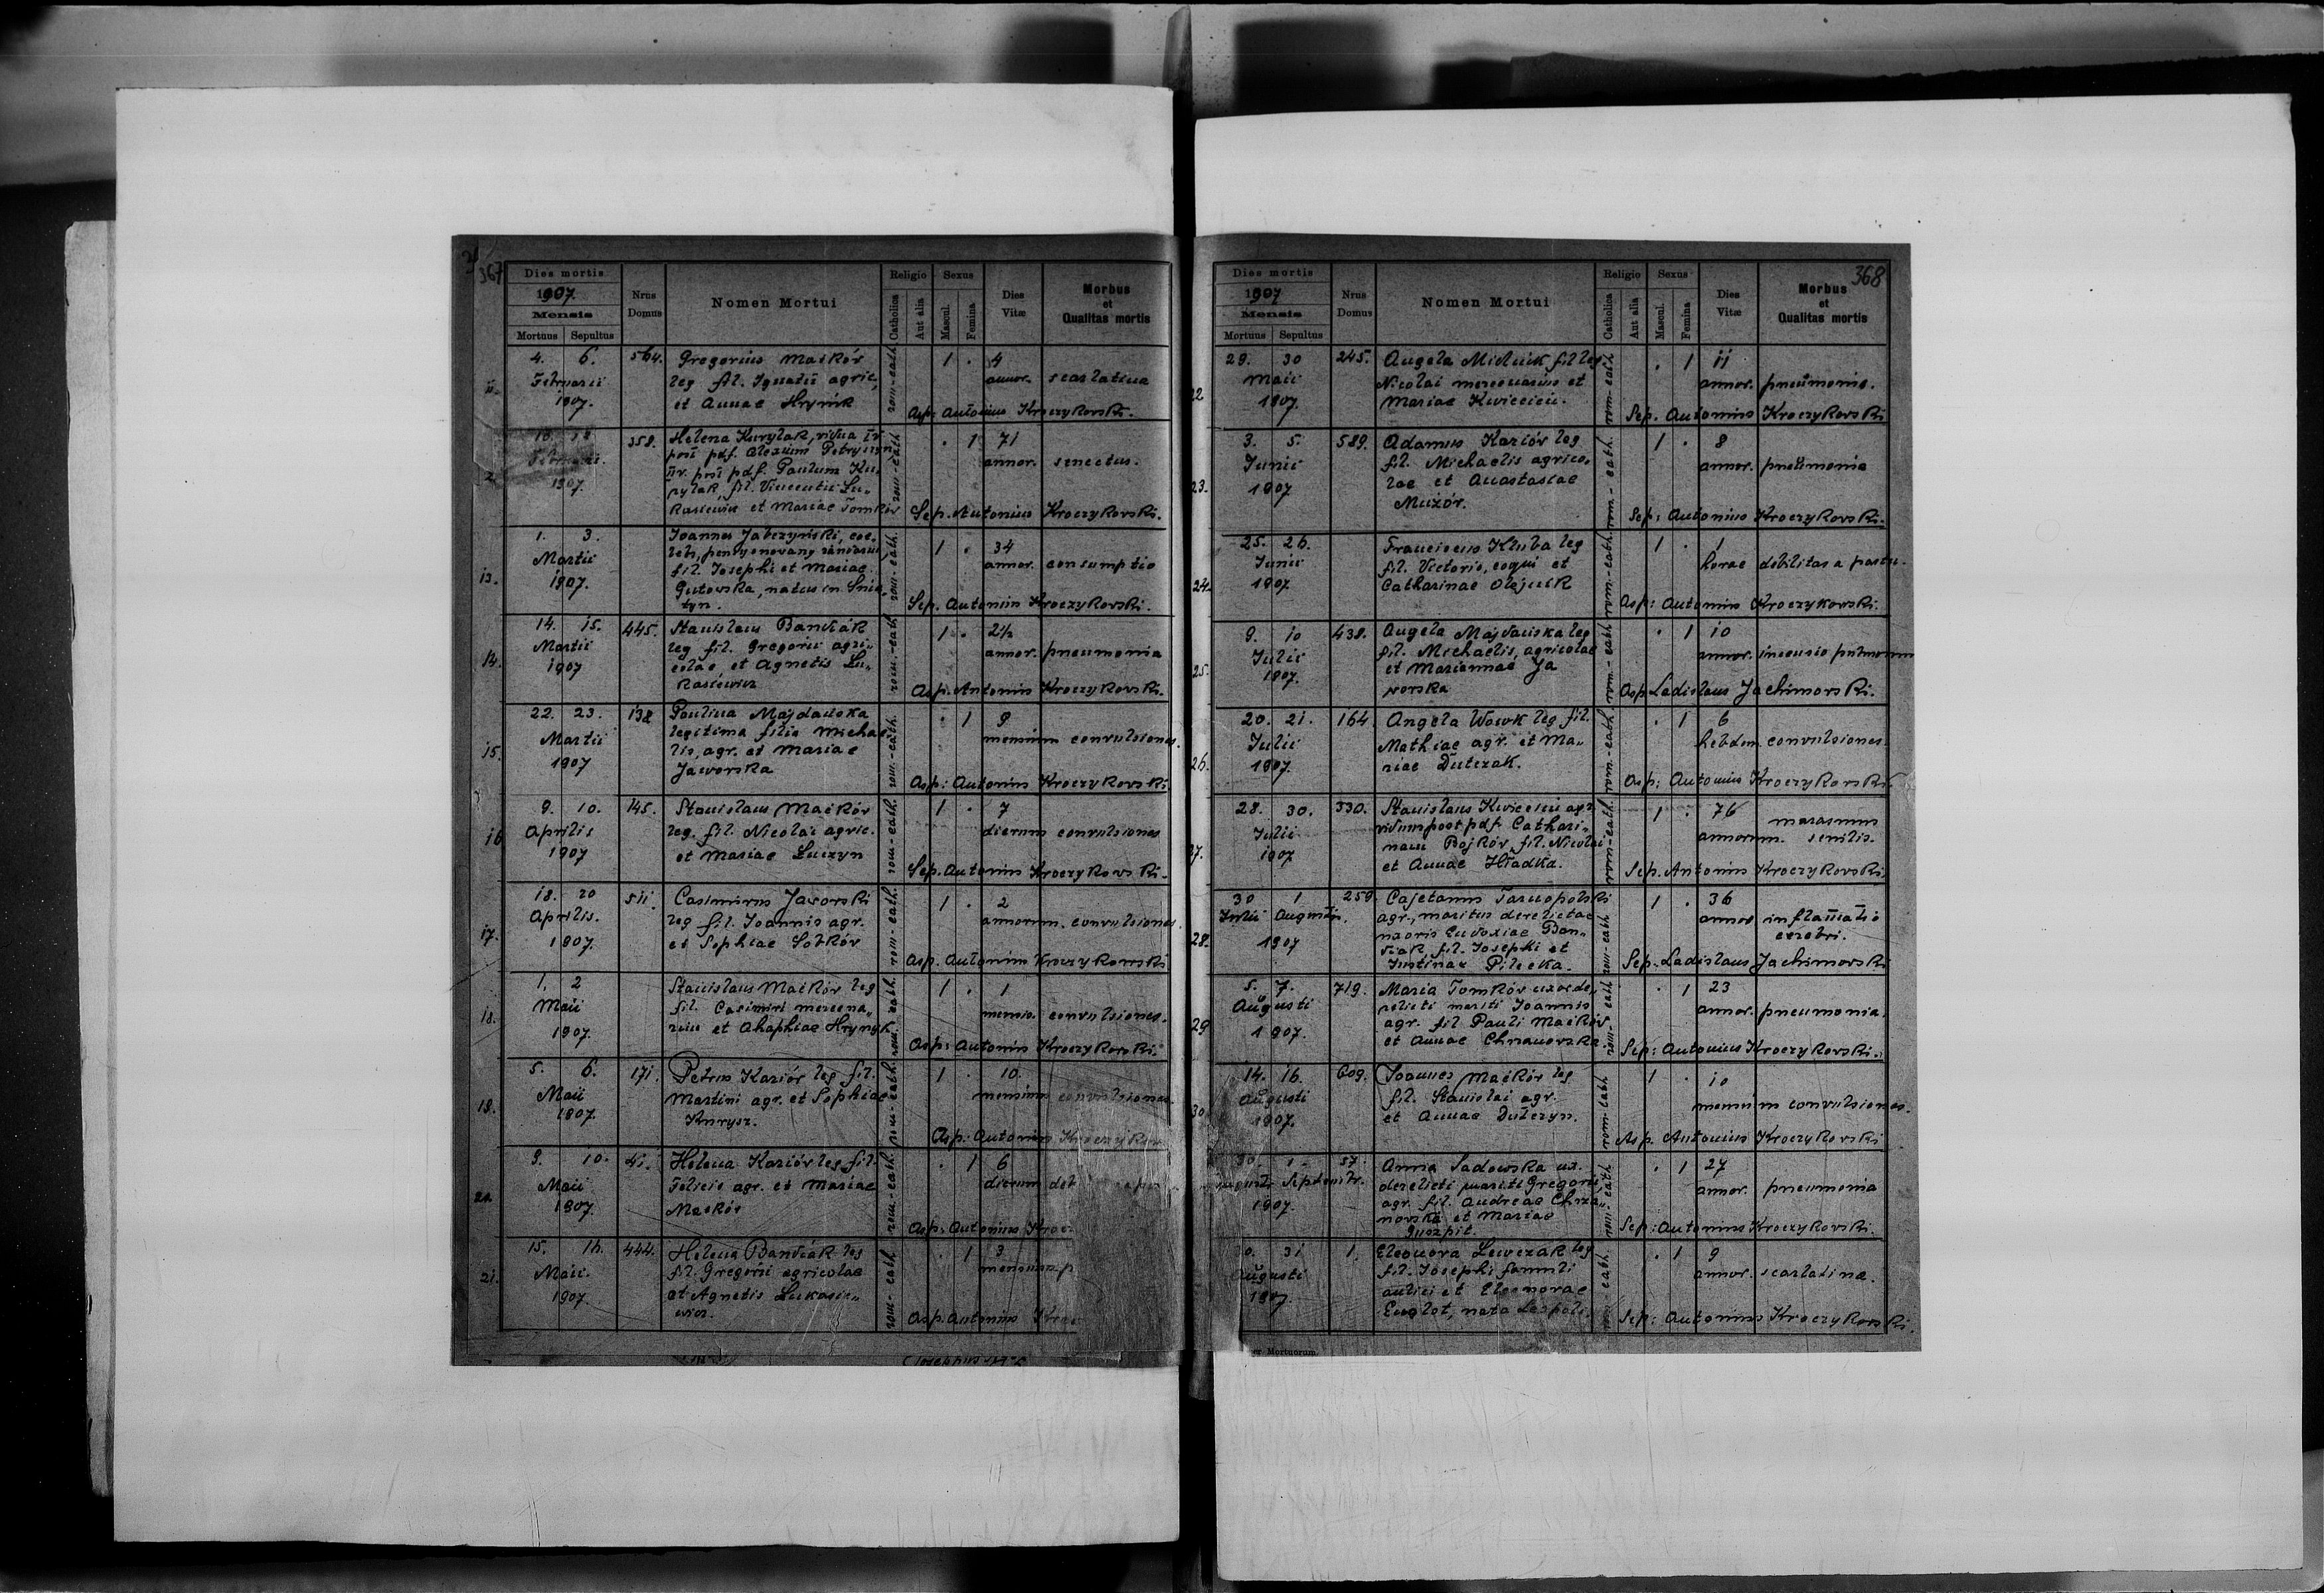 367
Dies mortis
1907.
Mensis
Mortuus Sepultus
Nrus Domus
Nomen Mortui
Religio
Catholica
Aut alia
Sexus
Mascul.
Femina
Dies Vitæ
Morbus et Qualitas mortis
11.
4. 6. 564. Gregorius Maćków rom-cath. 1 . 4
Februarii leg fil. Ignatii agric, annor. scarlatina
1907. et Annae Hrynik
Asp: Antonius Kroczykowski.
358. Helena Kurylak, vidua Iv rom-cath . 1 71
post pdf. Alexium annor. senectus.
1907. IIv. post pdf. Paulum Ku-
rylak, fil. Vincentii Łu-
kasiewicz et Mariae Tomków
Sep. Antonius Kroczykowski.
13.
1. 3. Joannes Jabczyński, coe- rom-cath. 1 . 34
Martii lebs, annor. consumptio
1907. fil. Josephi et Mariae
Gutowska, natus in Śnia-
tyn.
Sep. Antonius Kroczykowski.
14.
14. 15. 445. Stanislaus Bandiak rom.-cath 1 . 2½
Martii leg fil. Gregorii agri- annor. pneumonia
1907 colae et Agnetis Łu-
kasiewicz
Asp. Antonius Kroczykowski.
15.
22. 23. 138 Paulina Majdańska rom.-cath. . 1 9
Martii legitima filia Michae- mensium convulsiones.
1907 lis, agr. et Mariae
Jaworska
Asp: Antonius Kroczykowski.
16
9. 10. 145. Stanislaus Maćków rom-cath. 1 . 7
Aprilis leg. fil. Nicolai agric. dierum convulsiones
1907 et Mariae Łuczyn
Sep. Antonius Kroczykowski.
17.
18. 20 511. Casimirus Jaworski rom-cath. 1 . 2
Aprilis. leg fil. Joannis agr. annorum. convulsiones.
1907. et Sophiae Sobków
Asp. Antonius Kroczykowski
18.
1. 2 Stanislaus Maćków leg rom-cath. 1 . 1
Maii fil. Casimiri mercena- mensis. convulsiones.
1907. rii et Ahaphiae Hrynyk.
Asp: Antonius Kroczykowski.
19.
5. 6. 171. Petrus Kaziów leg fil. rom-cath. 1 . 10.
Maii Martini agr. et Sophiae mensium convulsiones.
1907. Kurysz.
Asp: Antonius
9. 10. 41. Helena Kaziów leg fil. rom-cath. . 1 6
Maii Felicis agr. et Mariae dierum
1907. Maćków
Asp: Antonius
21.
15. 16. 444. Helena Bandiak leg rom-cath . 1 3
Maii. fil. Gregorii agricolae mensium
1907. et Agnetis Łukasie-
wicz.
Asp. Antonius
368
Dies mortis
1907
Mensis
Mortuus Sepultus
Nrus Domus
Nomen Mortui
Religio
Catholica
Aut alia
Sexus
Mascul.
Femina
Dies Vitæ
Morbus et Qualitas mortis
22
29. 30 245. Angela Michnik fil leg rom-cath . 1 11
Maii Nicolai mercenarius et annor. pneumonia.
1907. Mariae Kwiecień.
Sep. Antonius Kroczykowski
23.
3. 5. 589. Adamus Kaziów leg rom-cath. 1 . 8
Junii fil. Michaelis agrico- annor. pneumonia
1907 lae et Anastasiae
Mużów.
Sep: Antonius Kroczykowski.
24.
25. 26. Franciscus Kluba leg rom-cath. 1 . 1
Junii fil. Victoris, coqui et horae debilitas a partu.
1907 Catharinae Olejnik
Asp: Antonius Kroczykowski.
25.
9. 10 438. Angela Majdańska leg rom-cath . 1 10
Julii fil. Michaelis, agricolae annor.
1907. et Mariannae Ja
worska
Asp. Ladislaus Jachimowski.
26.
20. 21. 164. Angela Wowk leg fil. rom-cath . 1 6
Julii Mathiae agr. et Ma- hebdom. convulsiones
1907. riae Dutczak.
Asp: Antonius Kroczykowski.
27.
28. 30. 330. Stanislaus Kwiecień agr. rom-cath 1 . 76 marasmus
Julii viduus post pdf. Cathari- annorum. senilis.
1907 nam Bojków, fil. Nicolai
et Annae Hładka.
Sep. Antonius Kroczykowski.
28.
30 1 259. Cajetanus Tarnopolski rom-cath 1 . 36
Julii Augusti. agr., maritus derelictae annor inflamatio
1907 uxoris Eudoxiae Ban- cerebri.
diak fil. Josephi et
Justinae Pilecka.
Sep. Ladislaus Jachimowski
29
5. 7. 719. Maria Tomków uxor de- rom-cath . 1 23
Augusti relicti mariti Joannis annor. pneumonia.
1907. agr. fil Pauli Maćków
et Annae Chrzanowska
Sep: Antonius Kroczykowski.
30.
14. 16. 609. Joannes Maćków leg rom-cath 1 . 10
Augusti fil. Stanislai agr. mensium convulsiones.
1907. et Annae Dutczyn.
Asp. Antonius Kroczykowski
30. 1. 57. Anna Sadowska ux. rom-cath . 1 27
Septembr. derelicti mariti Gregorii, annor. pneumonia
1907. agr. fil. Andreae Chrza-
nowski et Mariae
Sep: Antonius Kroczykowski.
30. 31 1. Eleonora Lewczak leg rom-cath . 1 9
Augusti fil. Josephi famuli annor. scarlatina.
1907. aulici et Eleonorae
nata Leopoli.
Sep: Antonius Kroczykowski.
er Mortuorum.